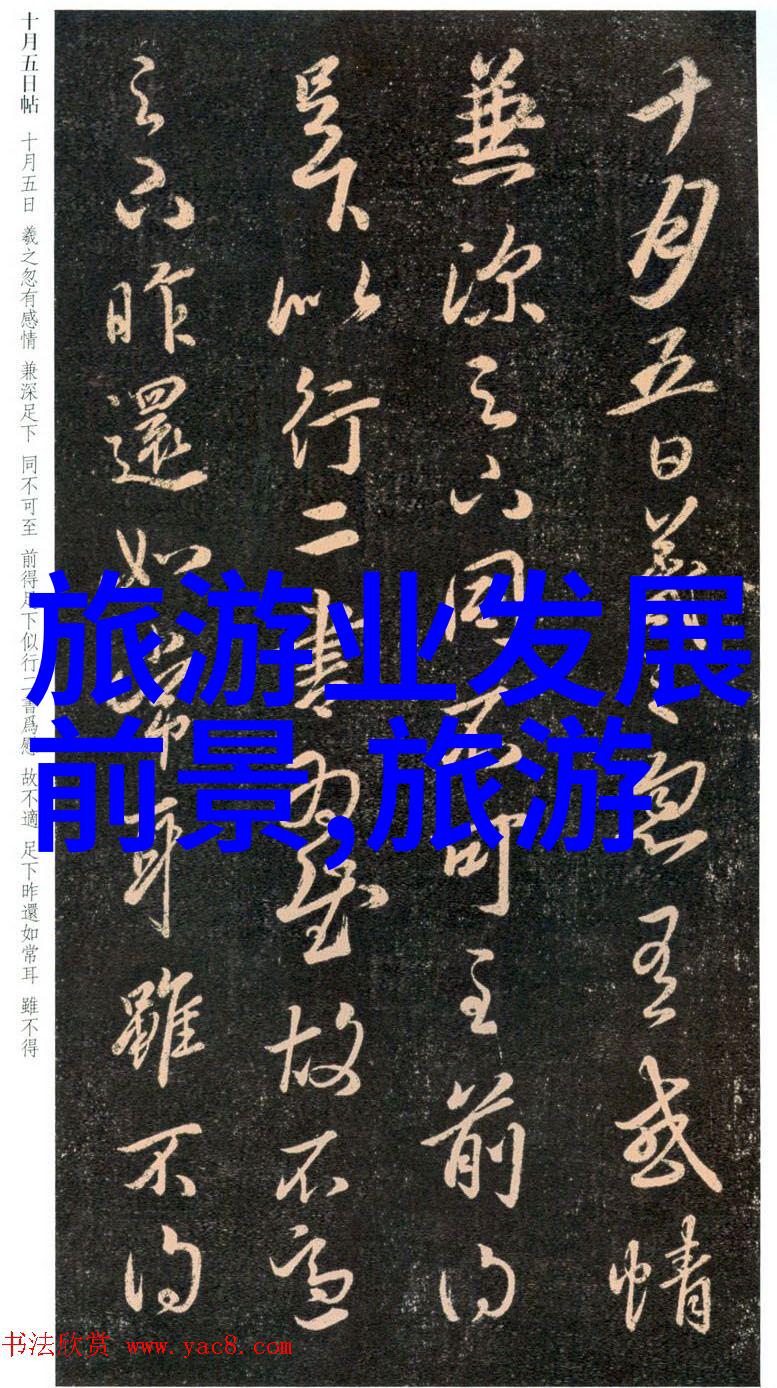 十月五日帖 十月五日 羲之忽有感情 兼深足下 同不可至 前得足下似行二書爲慰 故不適 足下昨還如常耳 雖不得
十月五日羲之忽有感情
兼深足下同不可至前得
足下似行二書為慰故不適
足下昨還如常耳雖不得
旅游业发展
前景,旅游
书法欣赏 www.yac8.com